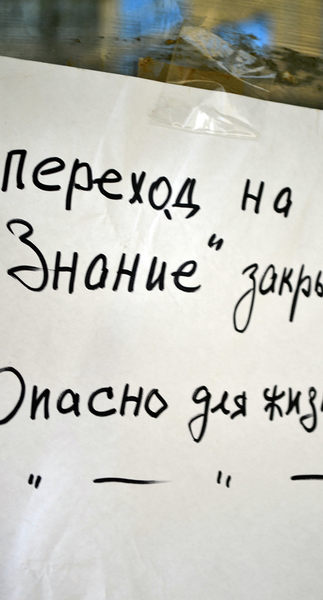 переход на
Знание" закры
Опасно для жиз
" — " —